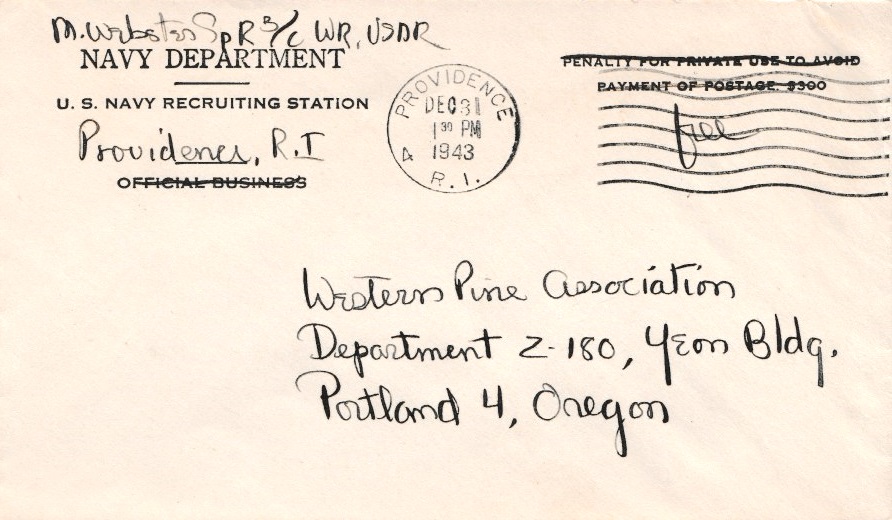 M. Webster Sp R 3/c WR, USNR
NAVY DEPARTMENT
U. S. NAVY RECRUITING STATION
Providence, R.I
OFFICIAL BUSINESS
PROVIDENCE
DEC 31
1 30 PM
1943
4
R. I.
PENALTY FOR PRIVATE USE TO AVOID
PAYMENT OF POSTAGE. $300
free
Western Pine Association
Department Z-180, Yeon Bldg.
Portland 4, Oregon